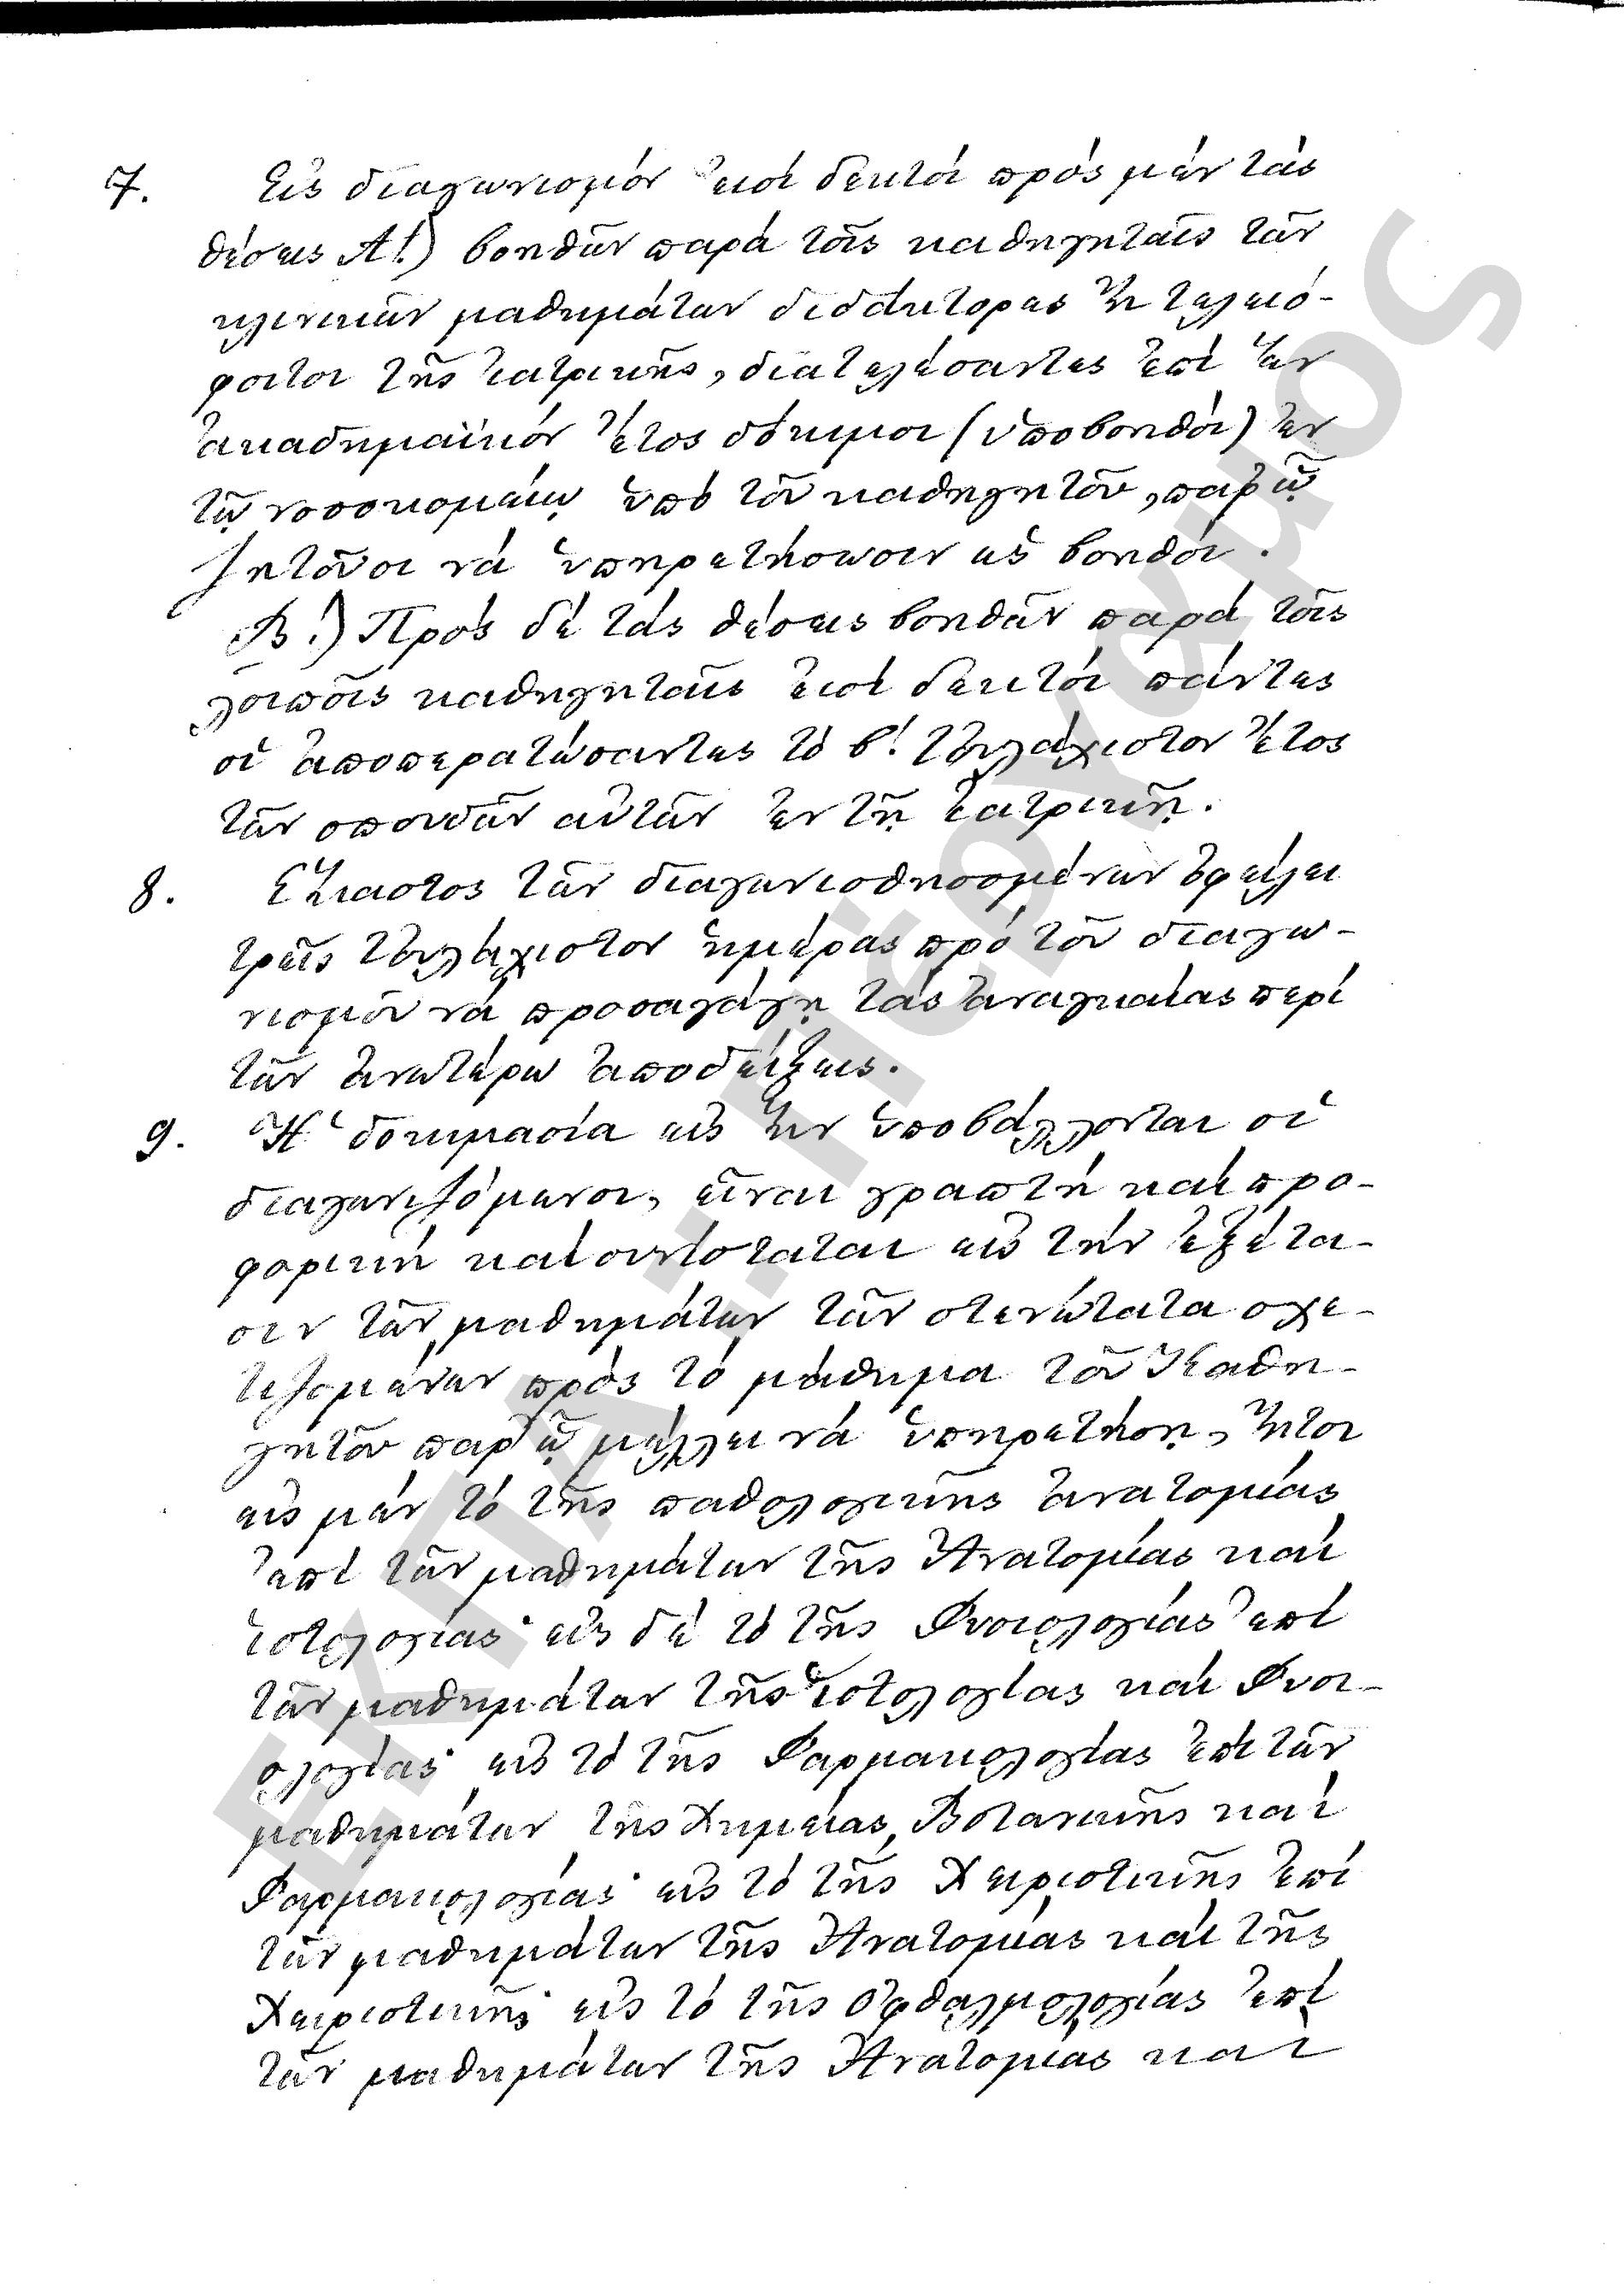 7. Εἰς διαγωνισμόν εἰσί δεκτοί πρός μέν τάς
θέσεις Α!) βοηθῶν παρά τοῖς καθηγηταῖς τῶν
κλινικῶν μαθημάτων διδάκτορες ἤ τελειό-
φοιτοι τῆς ἰατρικῆς, διατελέσαντες ἐπί ἕν
ἀκαδημαϊκόν ἔτος δόκιμοι (ὑποβοηθοί) ἐν
τῷ νοσοκομείῳ ὑπό τοῦ καθηγητοῦ, παρ' ᾧ
ζητοῦσι νά ὑπηρετήσωσιν ὡς βοηθοί.
Β!) Πρός δέ τάς θέσεις βοηθῶν παρά τοῖς
λοιποῖς καθηγηταῖς εἰσί δεκτοί πάντες
οἱ ἀποπερατώσαντες τό β! τοὐλάχιστον ἔτος
τῶν σπουδῶν αὐτῶν ἐν τῇ ἰατρικῇ.
8. Ἕκαστος τῶν διαγωνισθησομένων ὀφείλει
τρεῖς τοὐλάχιστον ἡμέρας πρό τοῦ διαγω-
νισμοῦ νά προσαγάγῃ τάς ἀναγκαίας περί
τῶν ἀνωτέρω ἀποδείξεις.
9. Ἡ δοκιμασία εἰς ἥν ὑποβάλλονται οἱ
διαγωνιζόμενοι, εἶναι γραπτή καί προ-
φορική καί συνίσταται εἰς τήν ἐξέτα-
σιν τῶν μαθημάτων τῶν στενώτατα σχε-
τιζομένων πρός τό μάθημα τοῦ Καθη-
γητοῦ παρ' ᾧ μέλλει νά ὑπηρετήσῃ, ἤτοι
εἰς μέν τό τῆς παθολογικῆς ἀνατομίας
ἐπί τῶν μαθημάτων τῆς Ἀνατομίας καί
ἱστολογίας· εἰς δέ τό τῆς Φυσιολογίας ἐπί
τῶν μαθημάτων τῆς ἱστολογίας καί Φυσι-
ολογίας· εἰς τό τῆς Φαρμακολογίας ἐπί τῶν
μαθημάτων τῆς Χημείας, Βοτανικῆς καί
Φαρμακολογίας· εἰς τό τῆς Χειριστικῆς ἐπί
τῶν μαθημάτων τῆς Ἀνατομίας καί τῆς
Χειριστικῆς· εἰς τό τῆς Ὀφθαλμολογίας ἐπί
τῶν μαθημάτων τῆς Ἀνατομίας καί
ΕΚΠΑ - Πέργαμος